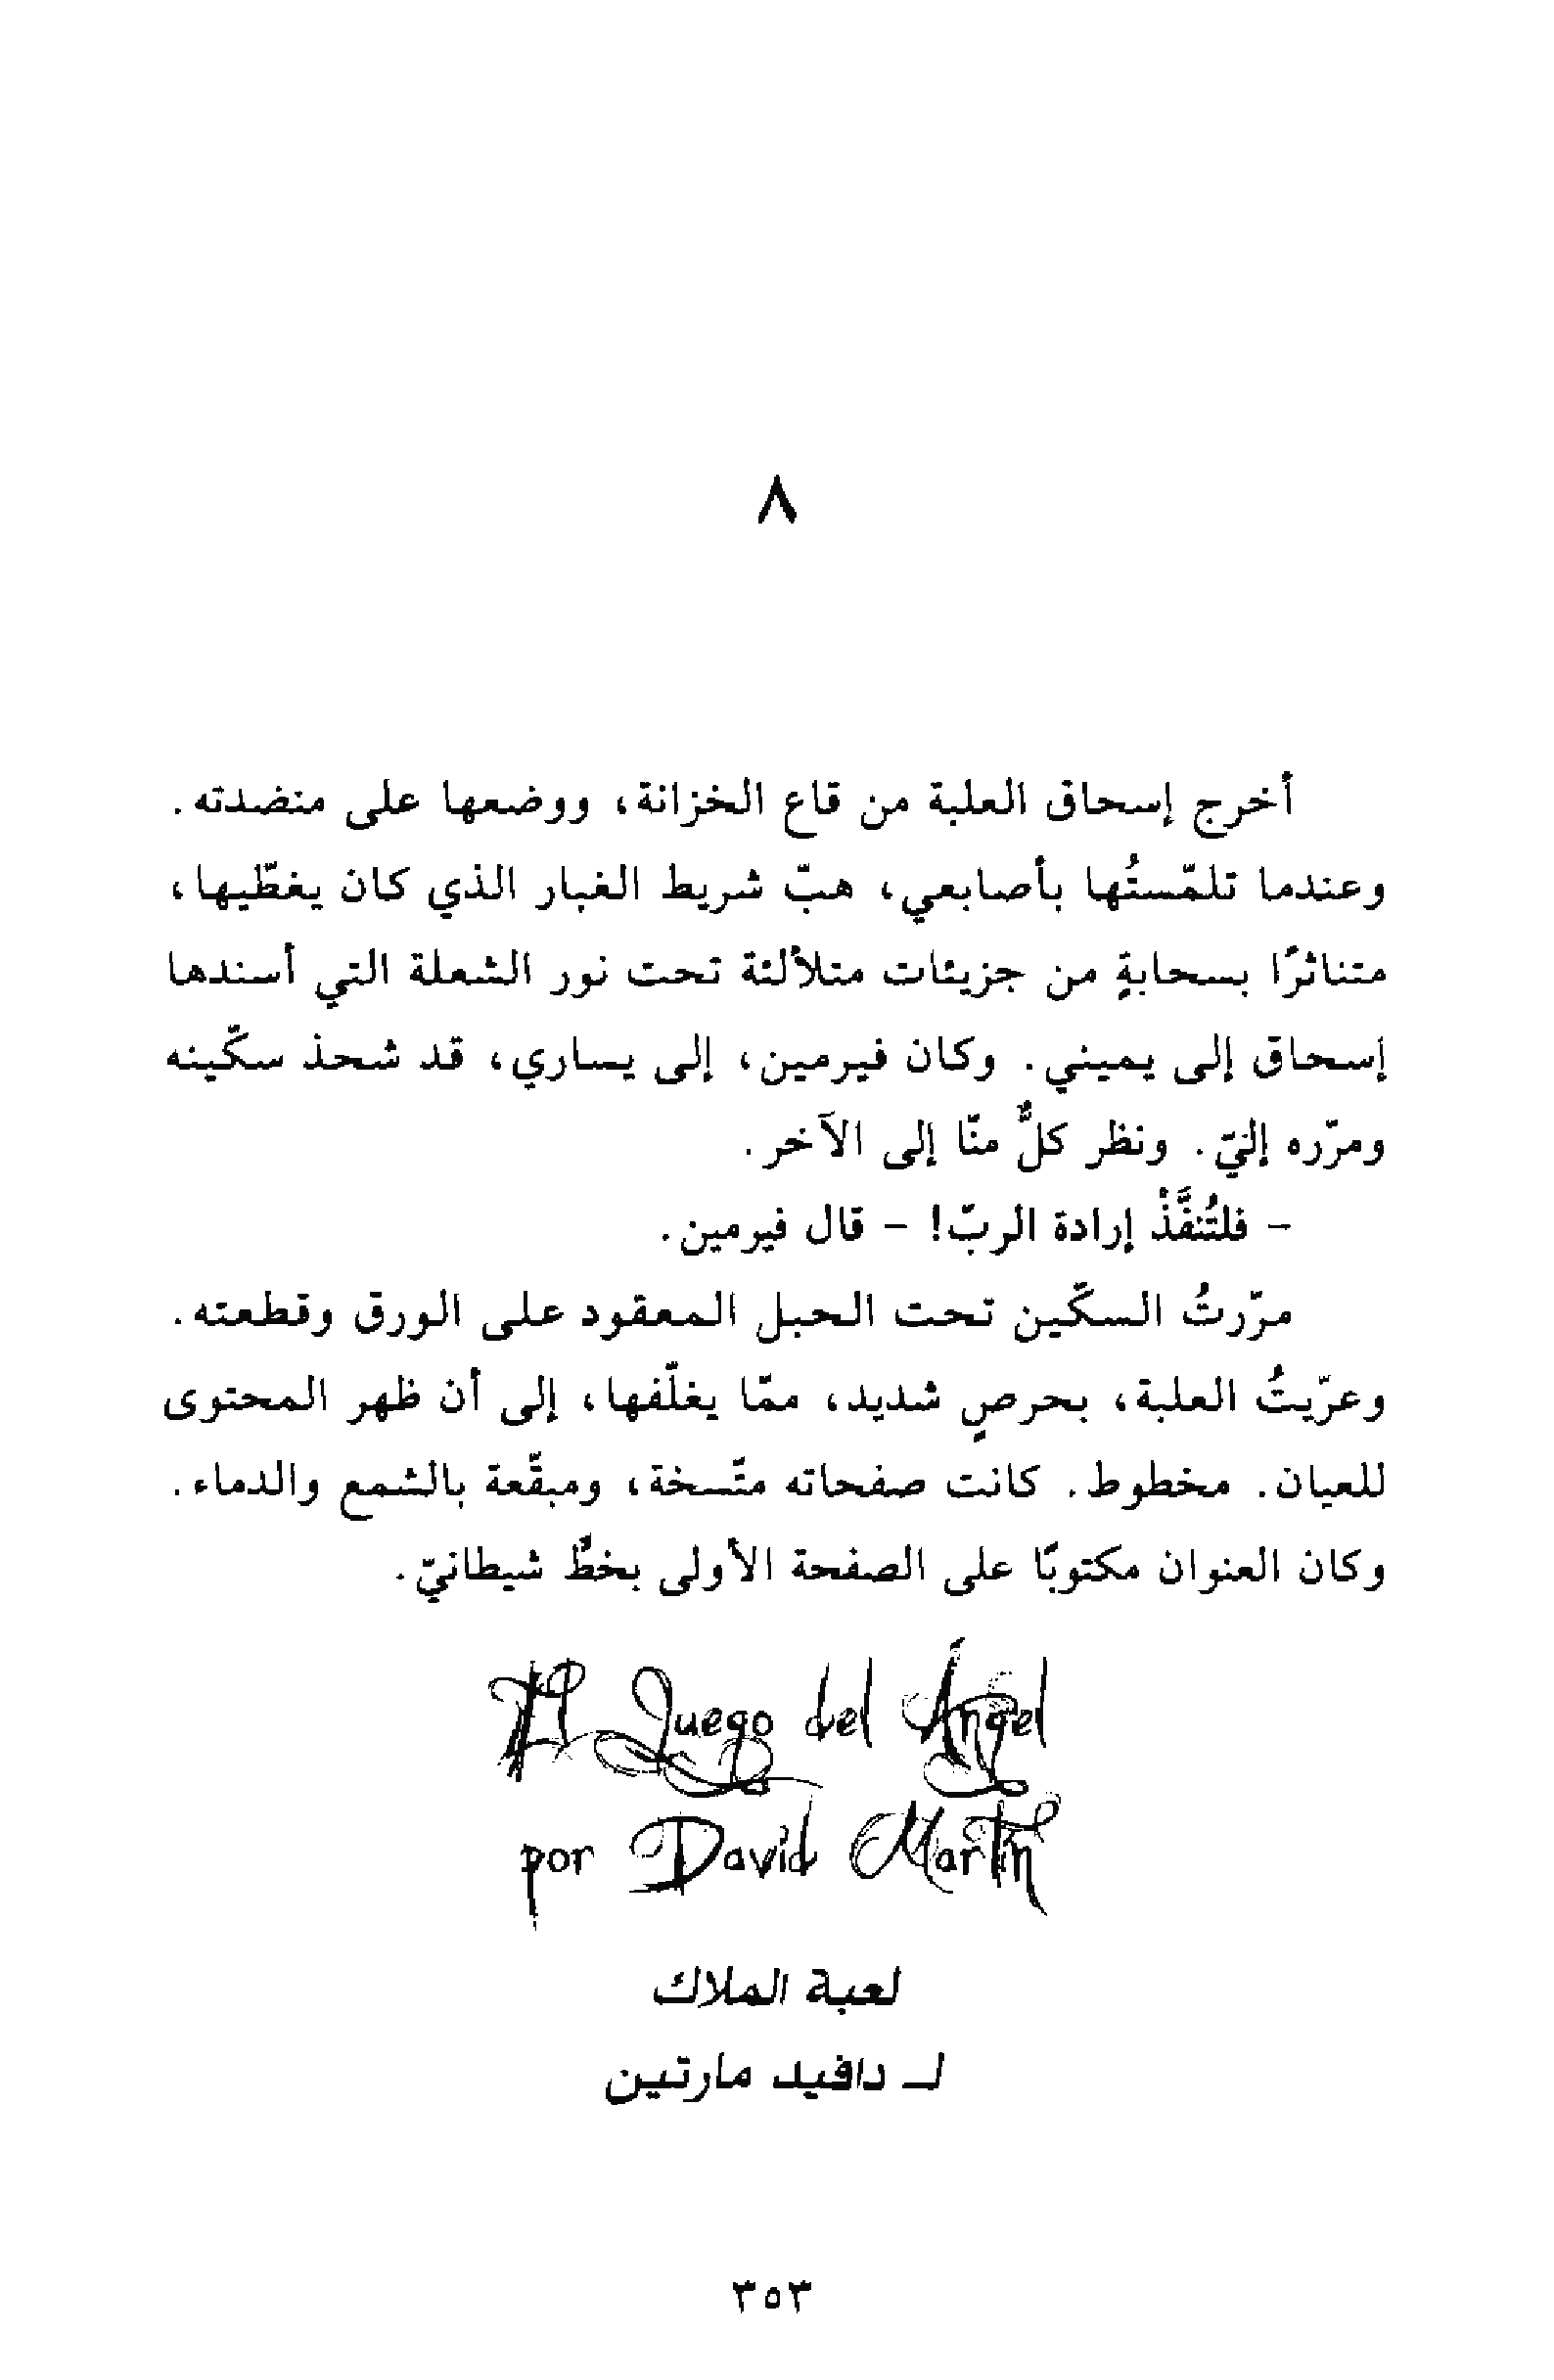 ٨
أخرج إسحاق العلبة من قاع الخزانة، ووضعها على منضدته.
وعندما تلمّستُها بأصابعي، هبّ شريط الغبار الذي كان يغطّيها،
متناثرًا بسحابةٍ من جزيئات متلألئة تحت نور الشعلة التي أسندها
إسحاق إلى يميني. وكان فيرمين، إلى يساري، قد شحذ سكّينه
ومرّره إليّ. ونظر كلٌّ منّا إلى الآخر.
- فلتُنفَّذْ إرادة الربّ! - قال فيرمين.
مرّرتُ السكّين تحت الحبل المعقود على الورق وقطعته.
وعرّيتُ العلبة، بحرصٍ شديد، ممّا يغلّفها، إلى أن ظهر المحتوى
للعيان. مخطوط. كانت صفحاته متّسخة، ومبقّعة بالشمع والدماء.
وكان العنوان مكتوبًا على الصفحة الأولى بخطٍّ شيطانيّ.
El Juego del Ángel
por David Martín
لعبة الملاك
لـ دافيد مارتين
٣٥٣